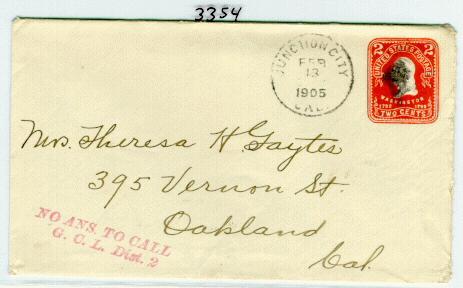 3354
JUNCTION CITY
FEB
13
1905
CAL.
2 UNITED STATES POSTAGE 2
WASHINGTON
1732 1799
TWO CENTS
Mrs. Theresa H Gaytes
395 Vernon St.
Oakland
Cal.
NO ANS. TO CALL
G. C. L. Dist. 2